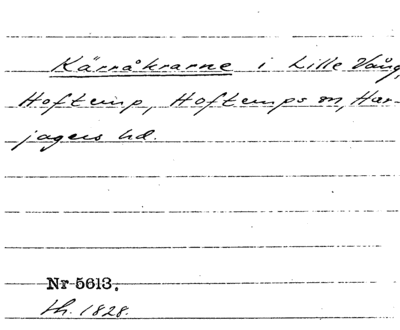 Kärråkrarne i Lille Vång,
Hoftemp, Hoftemps sn, Har-
jagers hd.
Nr 5613.
th. 1828.